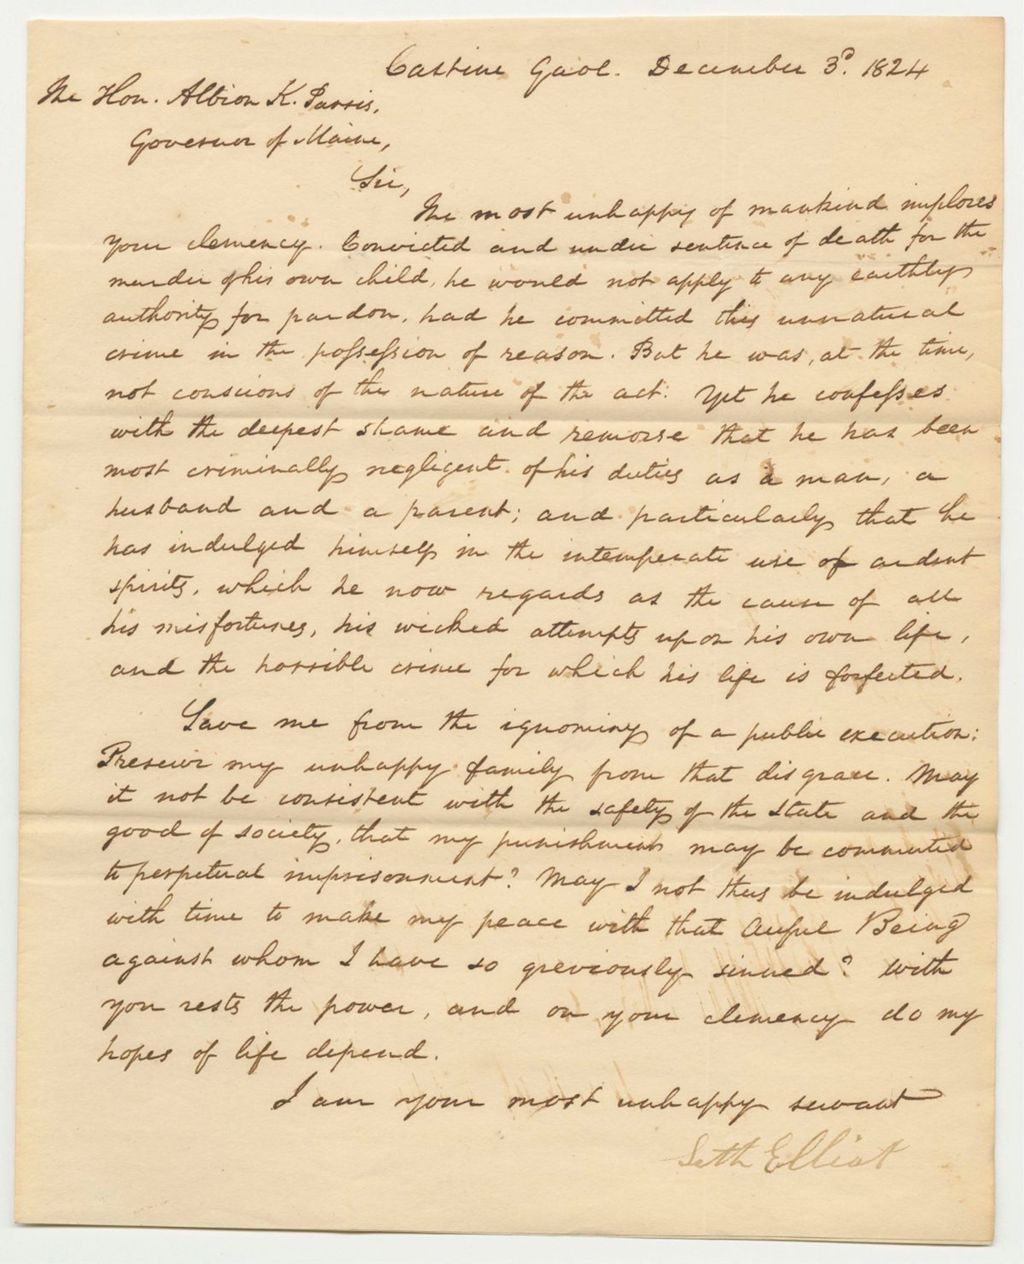 Castine Gaol. December 3d. 1824
The Hon. Albion K. Parris,
Governor of Maine,
Sir,
The most unhappy of mankind implores
your clemency. Convicted and under sentence of death for the
murder of his own child, he would not apply to any earthly
authority for pardon, had he committed this unnatural
crime in the possession of reason. But he was, at the time,
not conscious of the nature of the act. Yet he confesses
with the deepest shame and remorse that he has been
most criminally negligent of his duties as a man, a
husband and a parent; and particularly that he
has indulged himself in the intemperate use of ardent
spirits, which he now regards as the cause of all
his misfortunes, his wicked attempts upon his own life,
and the horrible crime for which his life is forfected.
Save me from the ignominy of a public execution:
Preserve my unhappy family from that disgrace. May
it not be consistent with the safety of the state and the
good of society, that my punishment may be commuted
to perpetual imprisonment? May I not thus be indulged
with time to make my peace with that Awful Being
against whom I have so greviously sinned? With
you rests the power, and on your clemency do my
hopes of life depend.
I am your most unhappy servant
Seth Elliot